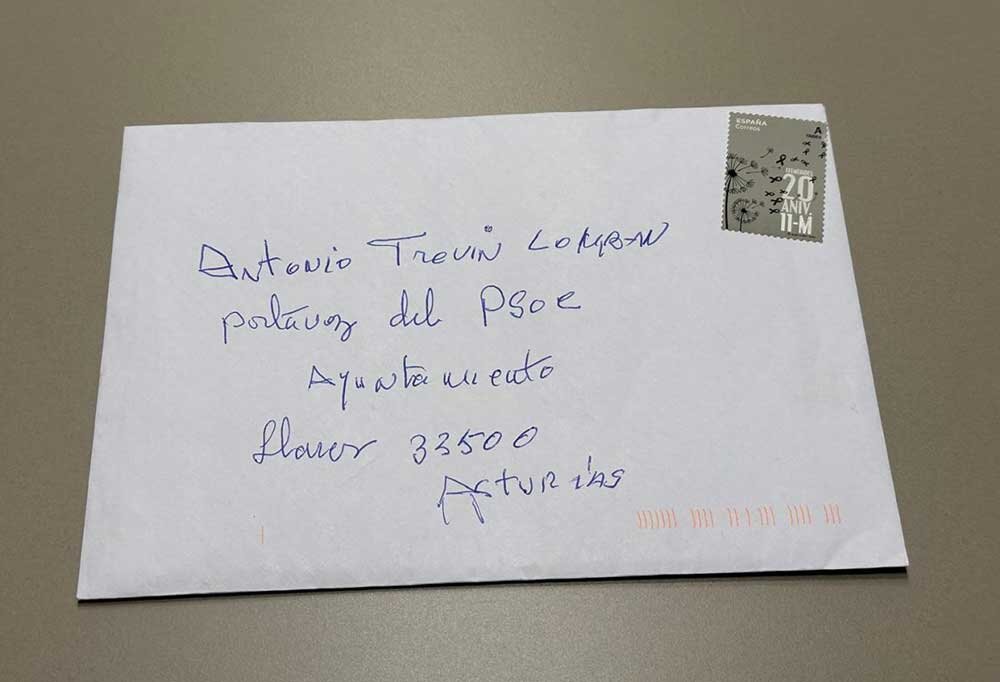 ESPAÑA
Correos
A
TARIFA
EFEMÉRIDES
20
ANIV.
11-M
Antonio Treviń Lomban
portavoz del PSOE
Ayuntamiento
Llanes 33500
Asturias